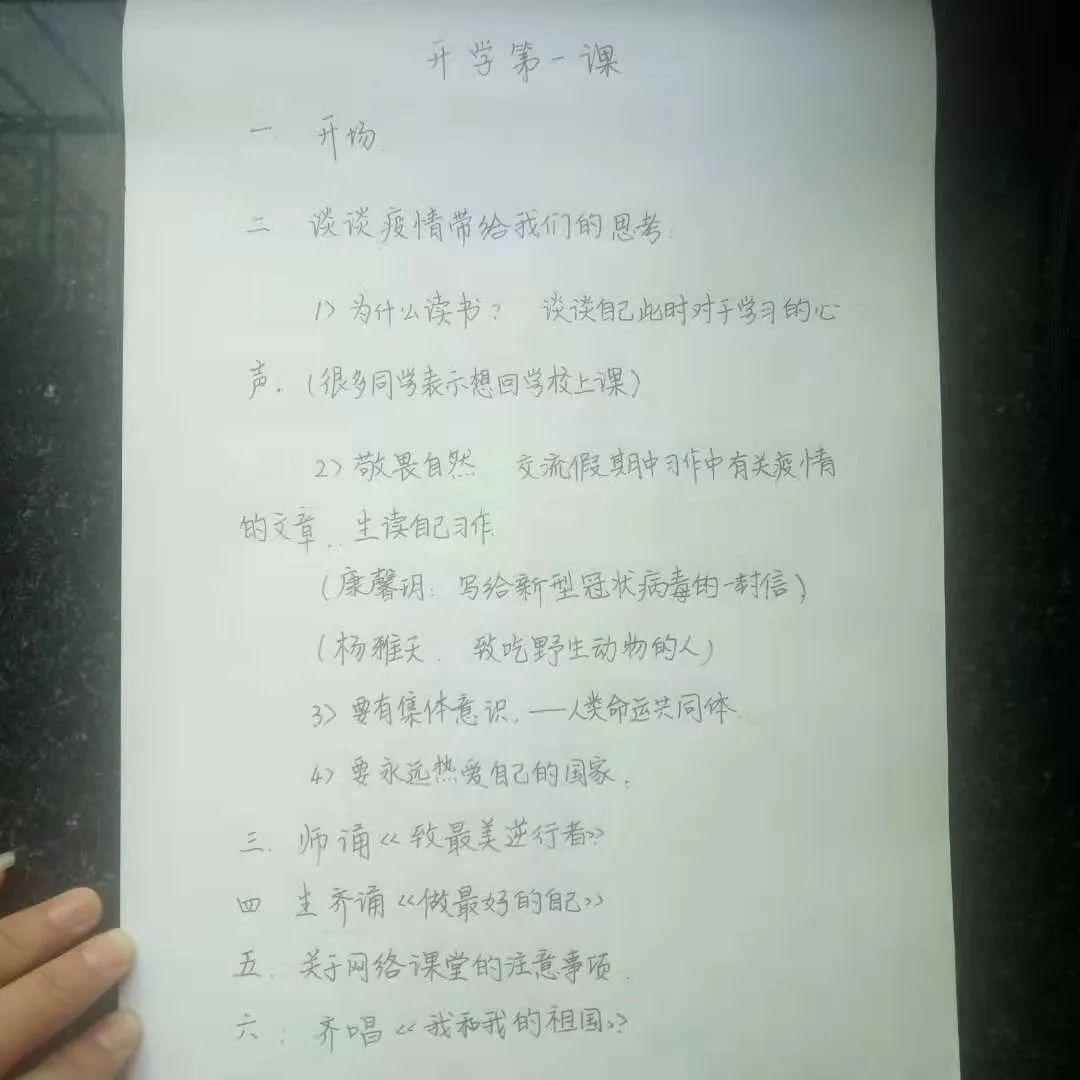 开学第一课
一. 开场.
二 谈谈疫情带给我们的思考.
1> 为什么读书? 谈谈自己此时对于学习的心
声. (很多同学表示想回学校上课)
2> 敬畏自然 交流假期中习作中有关疫情
的文章.. 生读自己习作
(康馨玥: 写给新型冠状病毒的一封信)
(杨雅天. 致吃野生动物的人)
3> 要有集体意识. ——人类命运共同体.
4> 要永远热爱自己的国家.
三. 师诵《致最美逆行者》
四 生齐诵《做最好的自己》
五. 关于网络课堂的注意事项.
六: 齐唱《我和我的祖国》